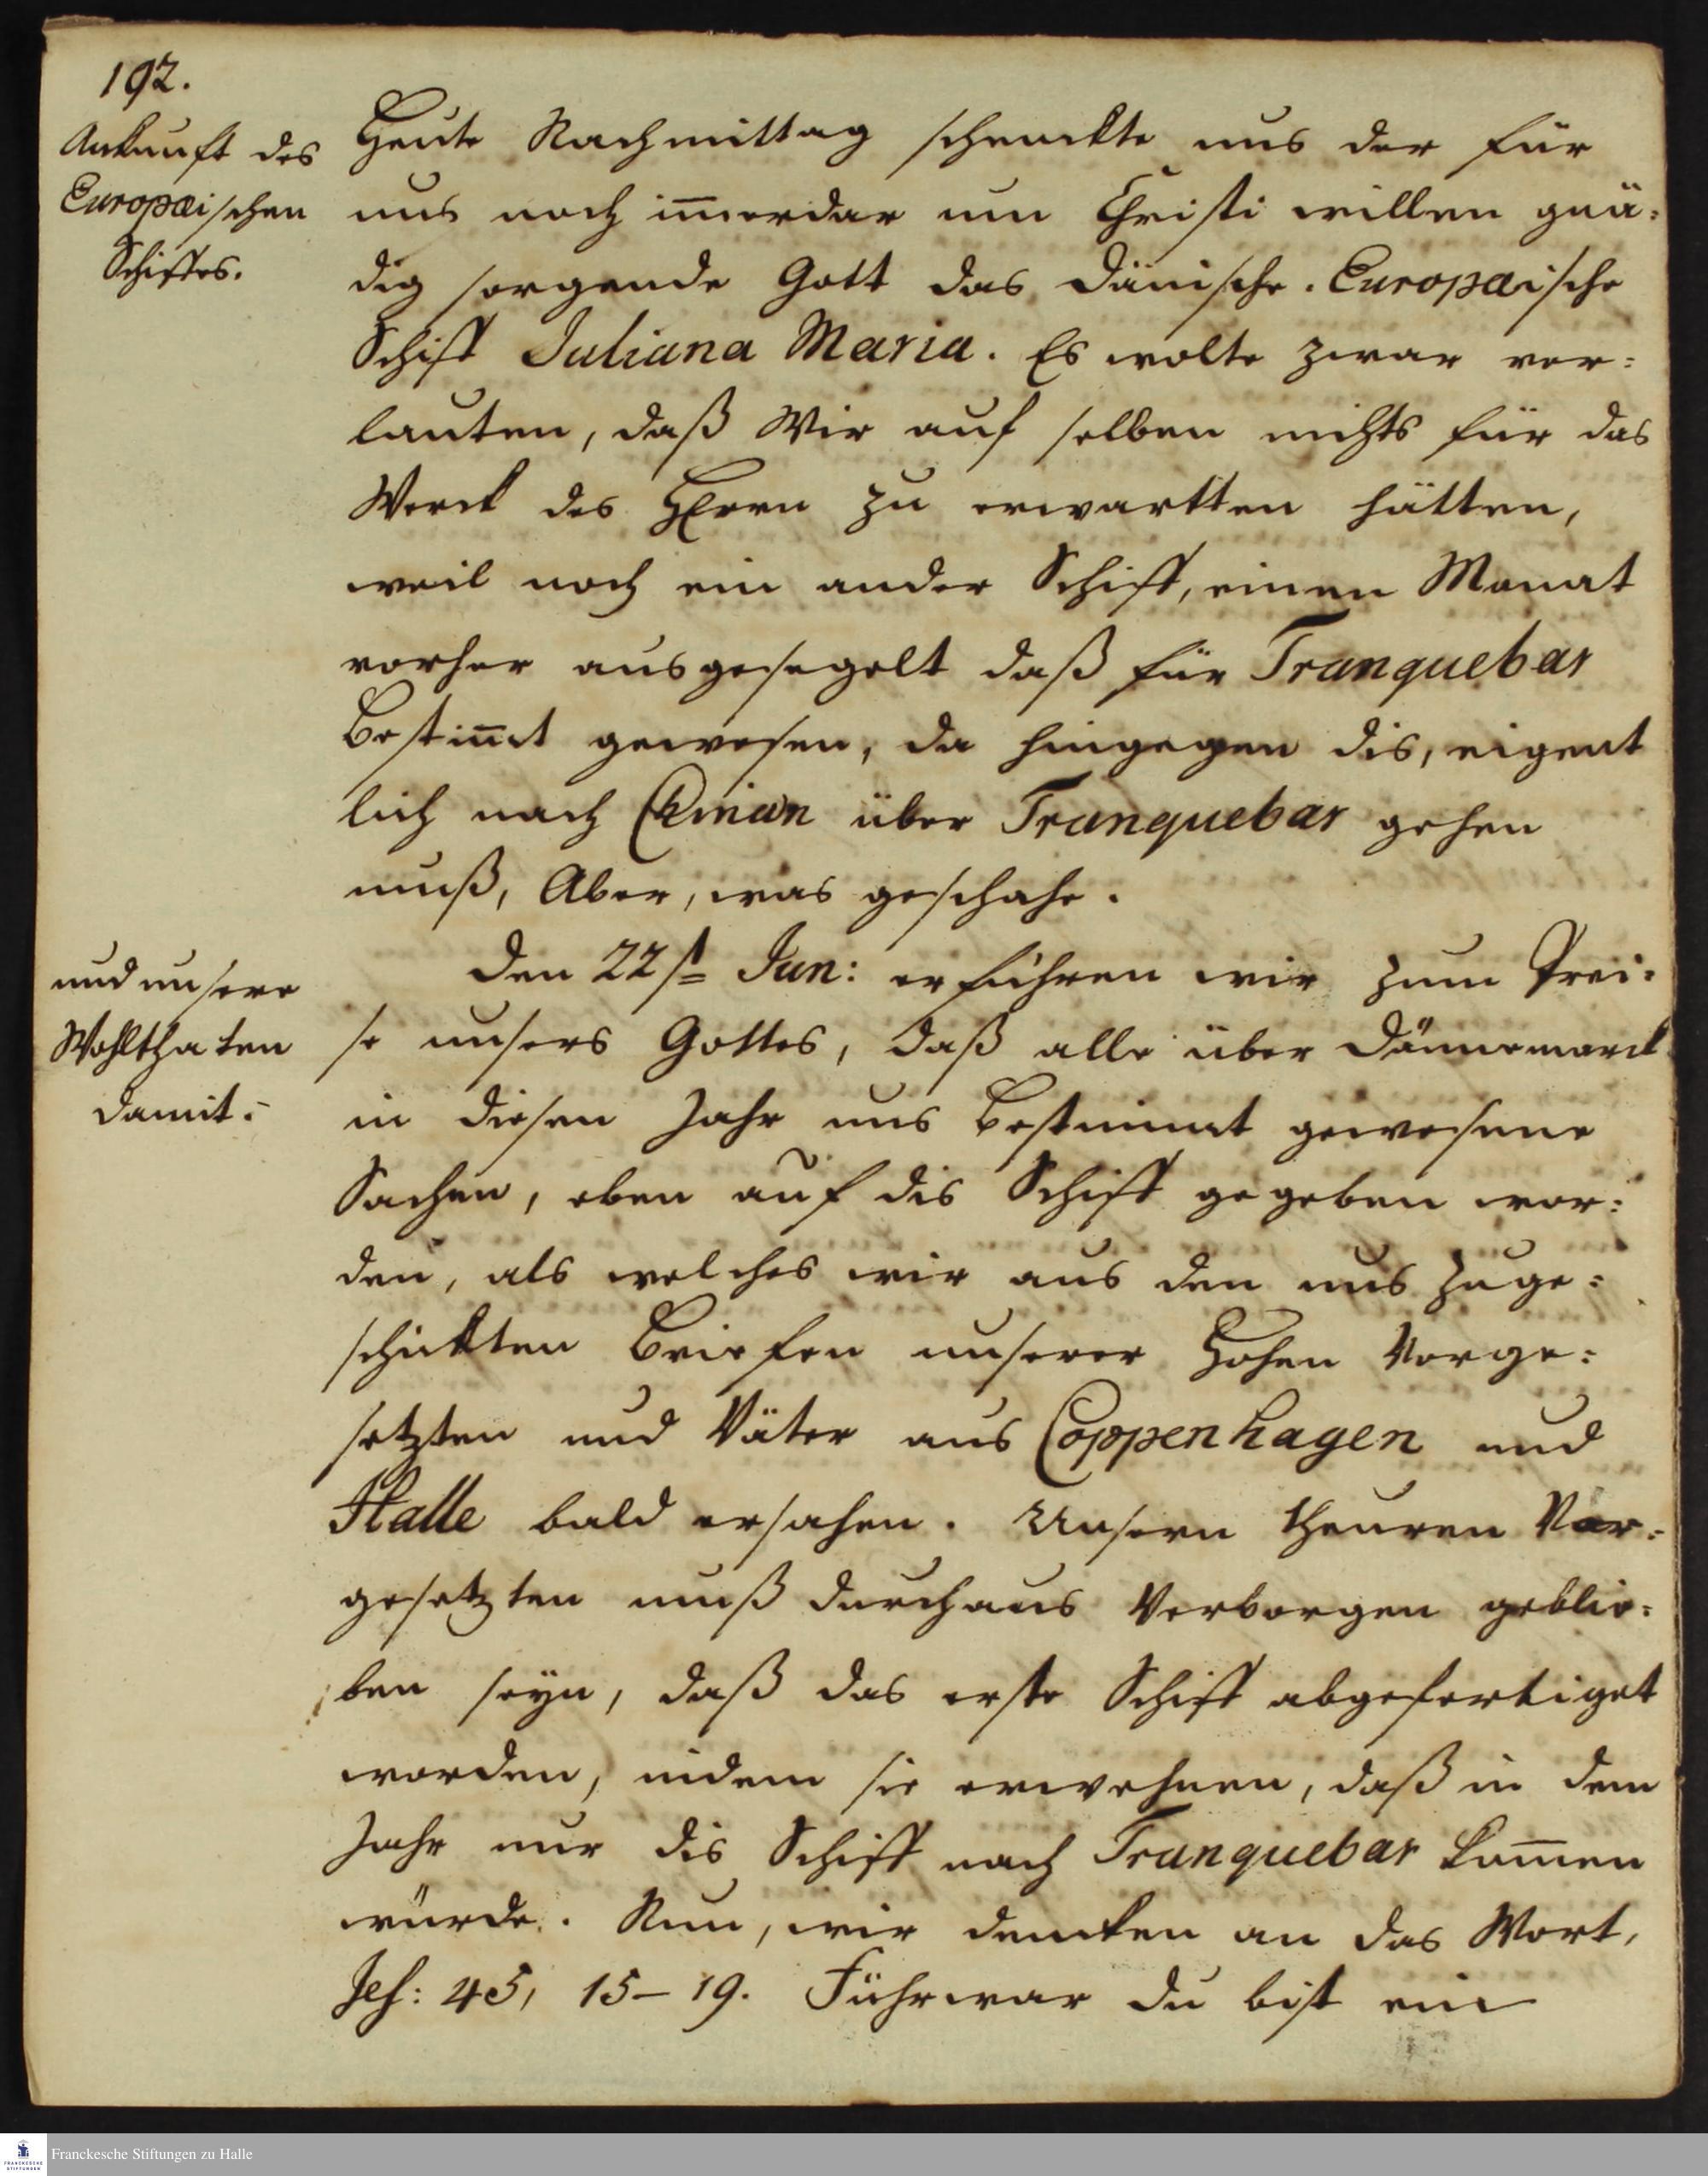 192.
Ankunft des
Europæischen
Schiffes.
Heute Nachmittag schenckte uns der für
uns noch im̅erdar um Christi willen gnä:
dig sorgende Gott das dänische. Europæische
Schiff Juliana Maria. Es wolte zwar ver:
lauten, daß Wir auf selben nichts für das
Werck des HErrn zu erwartten hätten,
weil noch ein ander Schiff, einen Monat
vorher ausgesegelt daß für Tranquebar
bestim̅t gewesen, da hingegen dis, eigent
lich nach Chinam über Tranquebar gehen
muß, Aber, was geschahe.
und unsere
Wohlthaten
damit.
Den 22st Jun: erführen wir zum Prei:
se unsers Gottes, daß alle über Dännemarck
in diesen Jahr uns bestimmt gewesene
Sachen, eben auf dis Schiff gegeben wor:
den, als welches wir aus den uns zuge:
schickten Briefen unserer Hohen Vorge:
setzten und Väter aus Coppenhagen und
Halle bald ersahen. Unsern theuren Vor:
gesetzten muß durchaus Verborgen geblie:
ben seyn, daß das erste Schiff abgefertiget
worden, indem sie erwehnen, daß in dem
Jahr nur dis Schiff nach Tranquebar kom̅en
würde. Nun, wir dencken an das Wort,
Jes: 45, 15–19. Führwar du bist ein
Franckesche Stiftungen zu Halle
FRANCKESCHE
STIFTUNGEN